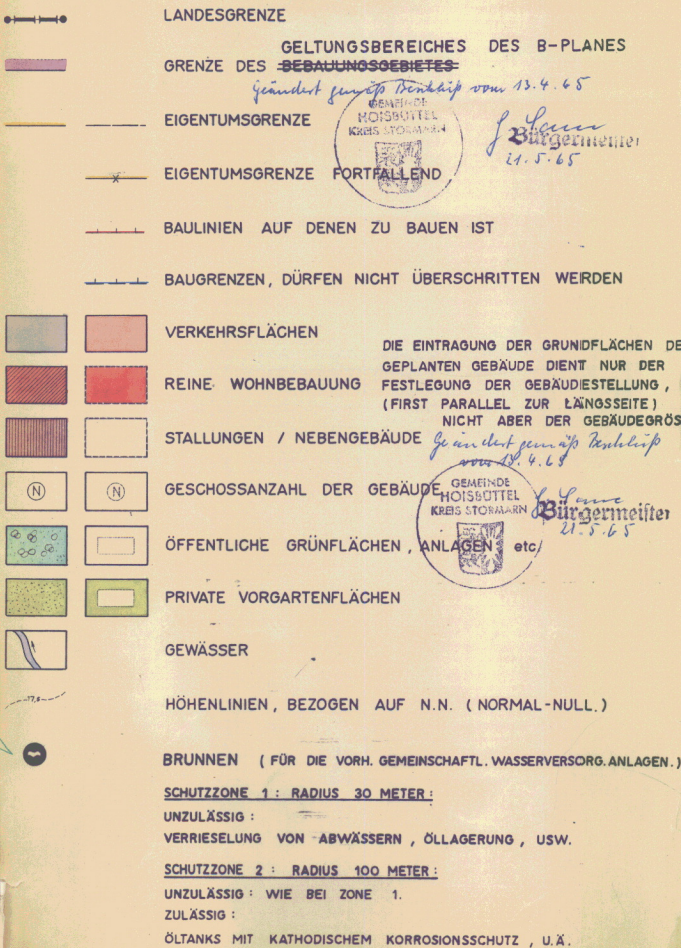 LANDESGRENZE
GELTUNGSBEREICHES DES B-PLANES
GRENZE DES BEBAUUNGSGEBIETES
Geändert gemäß Beschluß vom 13.4.65
GEMEINDE
HOISBÜTTEL
KREIS STORMARN
EIGENTUMSGRENZE
Bürgermeister
21.5.65
EIGENTUMSGRENZE FORTFALLEND
BAULINIEN AUF DENEN ZU BAUEN IST
BAUGRENZEN, DÜRFEN NICHT ÜBERSCHRITTEN WERDEN
VERKEHRSFLÄCHEN
DIE EINTRAGUNG DER GRUNDFLÄCHEN DE
GEPLANTEN GEBÄUDE DIENT NUR DER
REINE WOHNBEBAUUNG
FESTLEGUNG DER GEBÄUDESTELLUNG,
(FIRST PARALLEL ZUR LÄNGSSEITE)
NICHT ABER DER GEBÄUDEGRÖS
STALLUNGEN / NEBENGEBÄUDE
Geändert gemäß Beschluß
vom 13.4.65
N N
GESCHOSSANZAHL DER GEBÄUDE
GEMEINDE
HOISBÜTTEL
KREIS STORMARN
Bürgermeister
21.5.65
ÖFFENTLICHE GRÜNFLÄCHEN, ANLAGEN etc/
PRIVATE VORGARTENFLÄCHEN
GEWÄSSER
HÖHENLINIEN, BEZOGEN AUF N.N. (NORMAL-NULL.)
BRUNNEN (FÜR DIE VORH. GEMEINSCHAFTL. WASSERVERSORG. ANLAGEN.)
SCHUTZZONE 1: RADIUS 30 METER:
UNZULÄSSIG:
VERRIESELUNG VON ABWÄSSERN, ÖLLAGERUNG, USW.
SCHUTZZONE 2: RADIUS 100 METER:
UNZULÄSSIG: WIE BEI ZONE 1.
ZULÄSSIG:
ÖLTANKS MIT KATHODISCHEM KORROSIONSSCHUTZ, U.Ä.